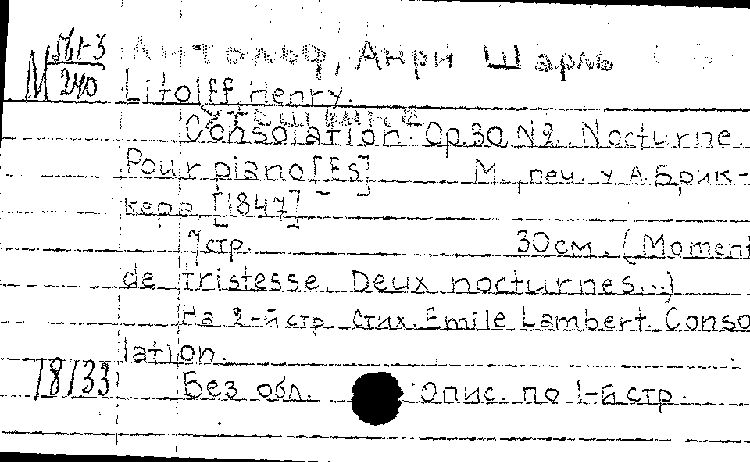 Литольф, Анри Шарль
М 561-3/240
Litolff, Henry.
Утешение
Consolation. Op.30 N2. Nocturne.
Pour piano [Es] М., печ. у А. Брик-
кера [1847]
7 стр. 30 см. (Moment
de tristesse. Deux nocturnes...)
На 2-й стр. стих. Emile Lambert. Conso
lation.
18133 Без обл. Опис. по 1-й стр.